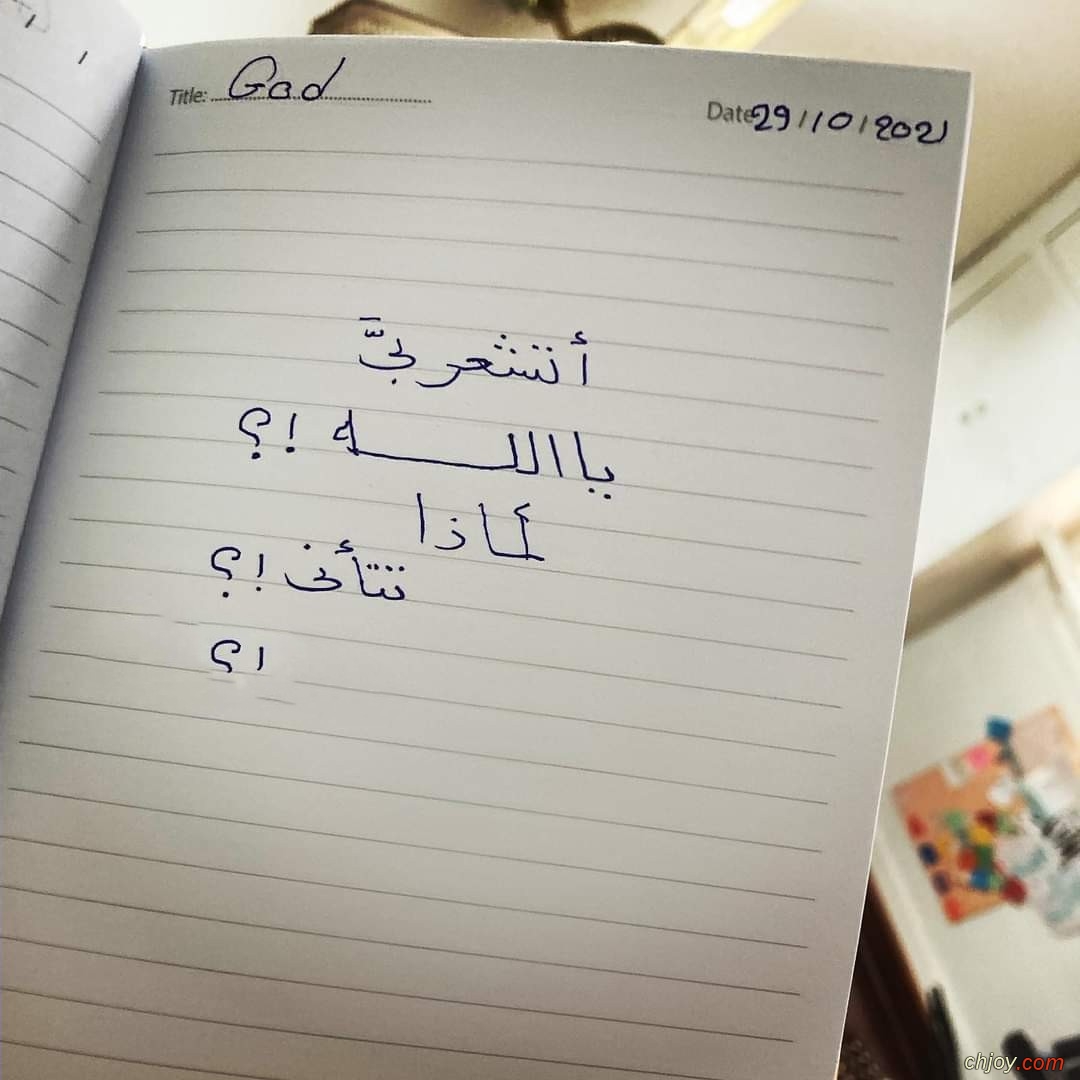 Title: God
Date 29/10/2021
أتشعر بيَّ
ياالله !؟
لماذا
تتأنى !؟
!؟
chjoy.com